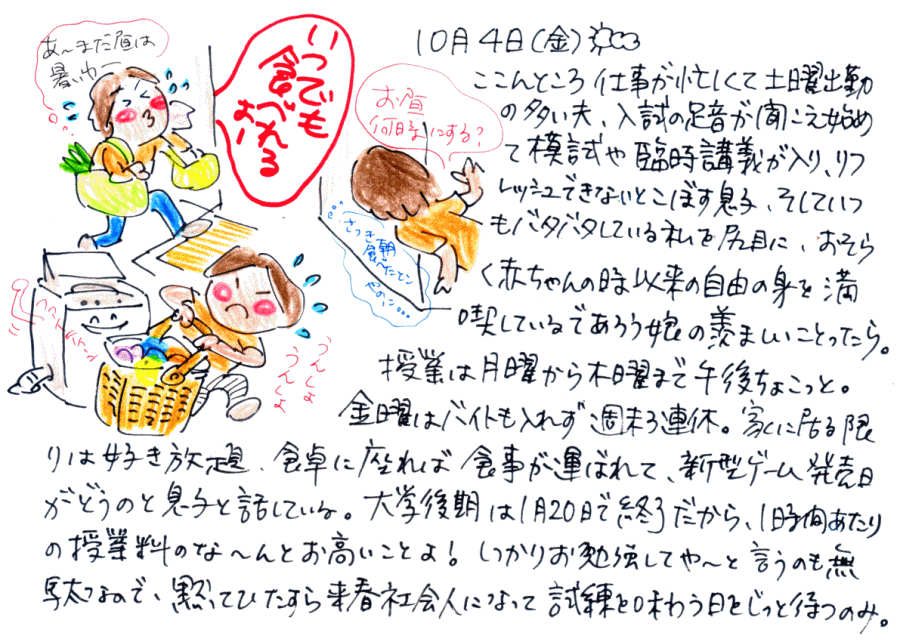 あ〜まだ昼は
暑いわー
いつでも
食べれる
お!
お昼
何時にする?
さっき朝
食べたてん
やのに…
うんしょ
うんしょ
10月4日(金)
ここんところ仕事が忙しくて土曜出勤
の多い夫、入試の足音が聞こえ始め
て模試や臨時講義が入り、リフ
レッシュできないとこぼす息子、そしていつ
もバタバタしている私を尻目に、おそら
く赤ちゃんの時以来の自由の身を満
喫しているであろう娘の羨ましいことったら。
授業は月曜から木曜まで午後ちょこっと。
金曜はバイトも入れず週末3連休。家に居る限
りは好き放題、食卓に座れば食事が運ばれて、新型ゲーム発売日
がどうのと息子と話している。大学後期は1月20日で終了だから、1時間あたり
の授業料のな〜んとお高いことよ!しっかりお勉強してや〜と言うのも無
駄なので、黙ってひたすら来春社会人になって試練を味わう日をじっと待つのみ。